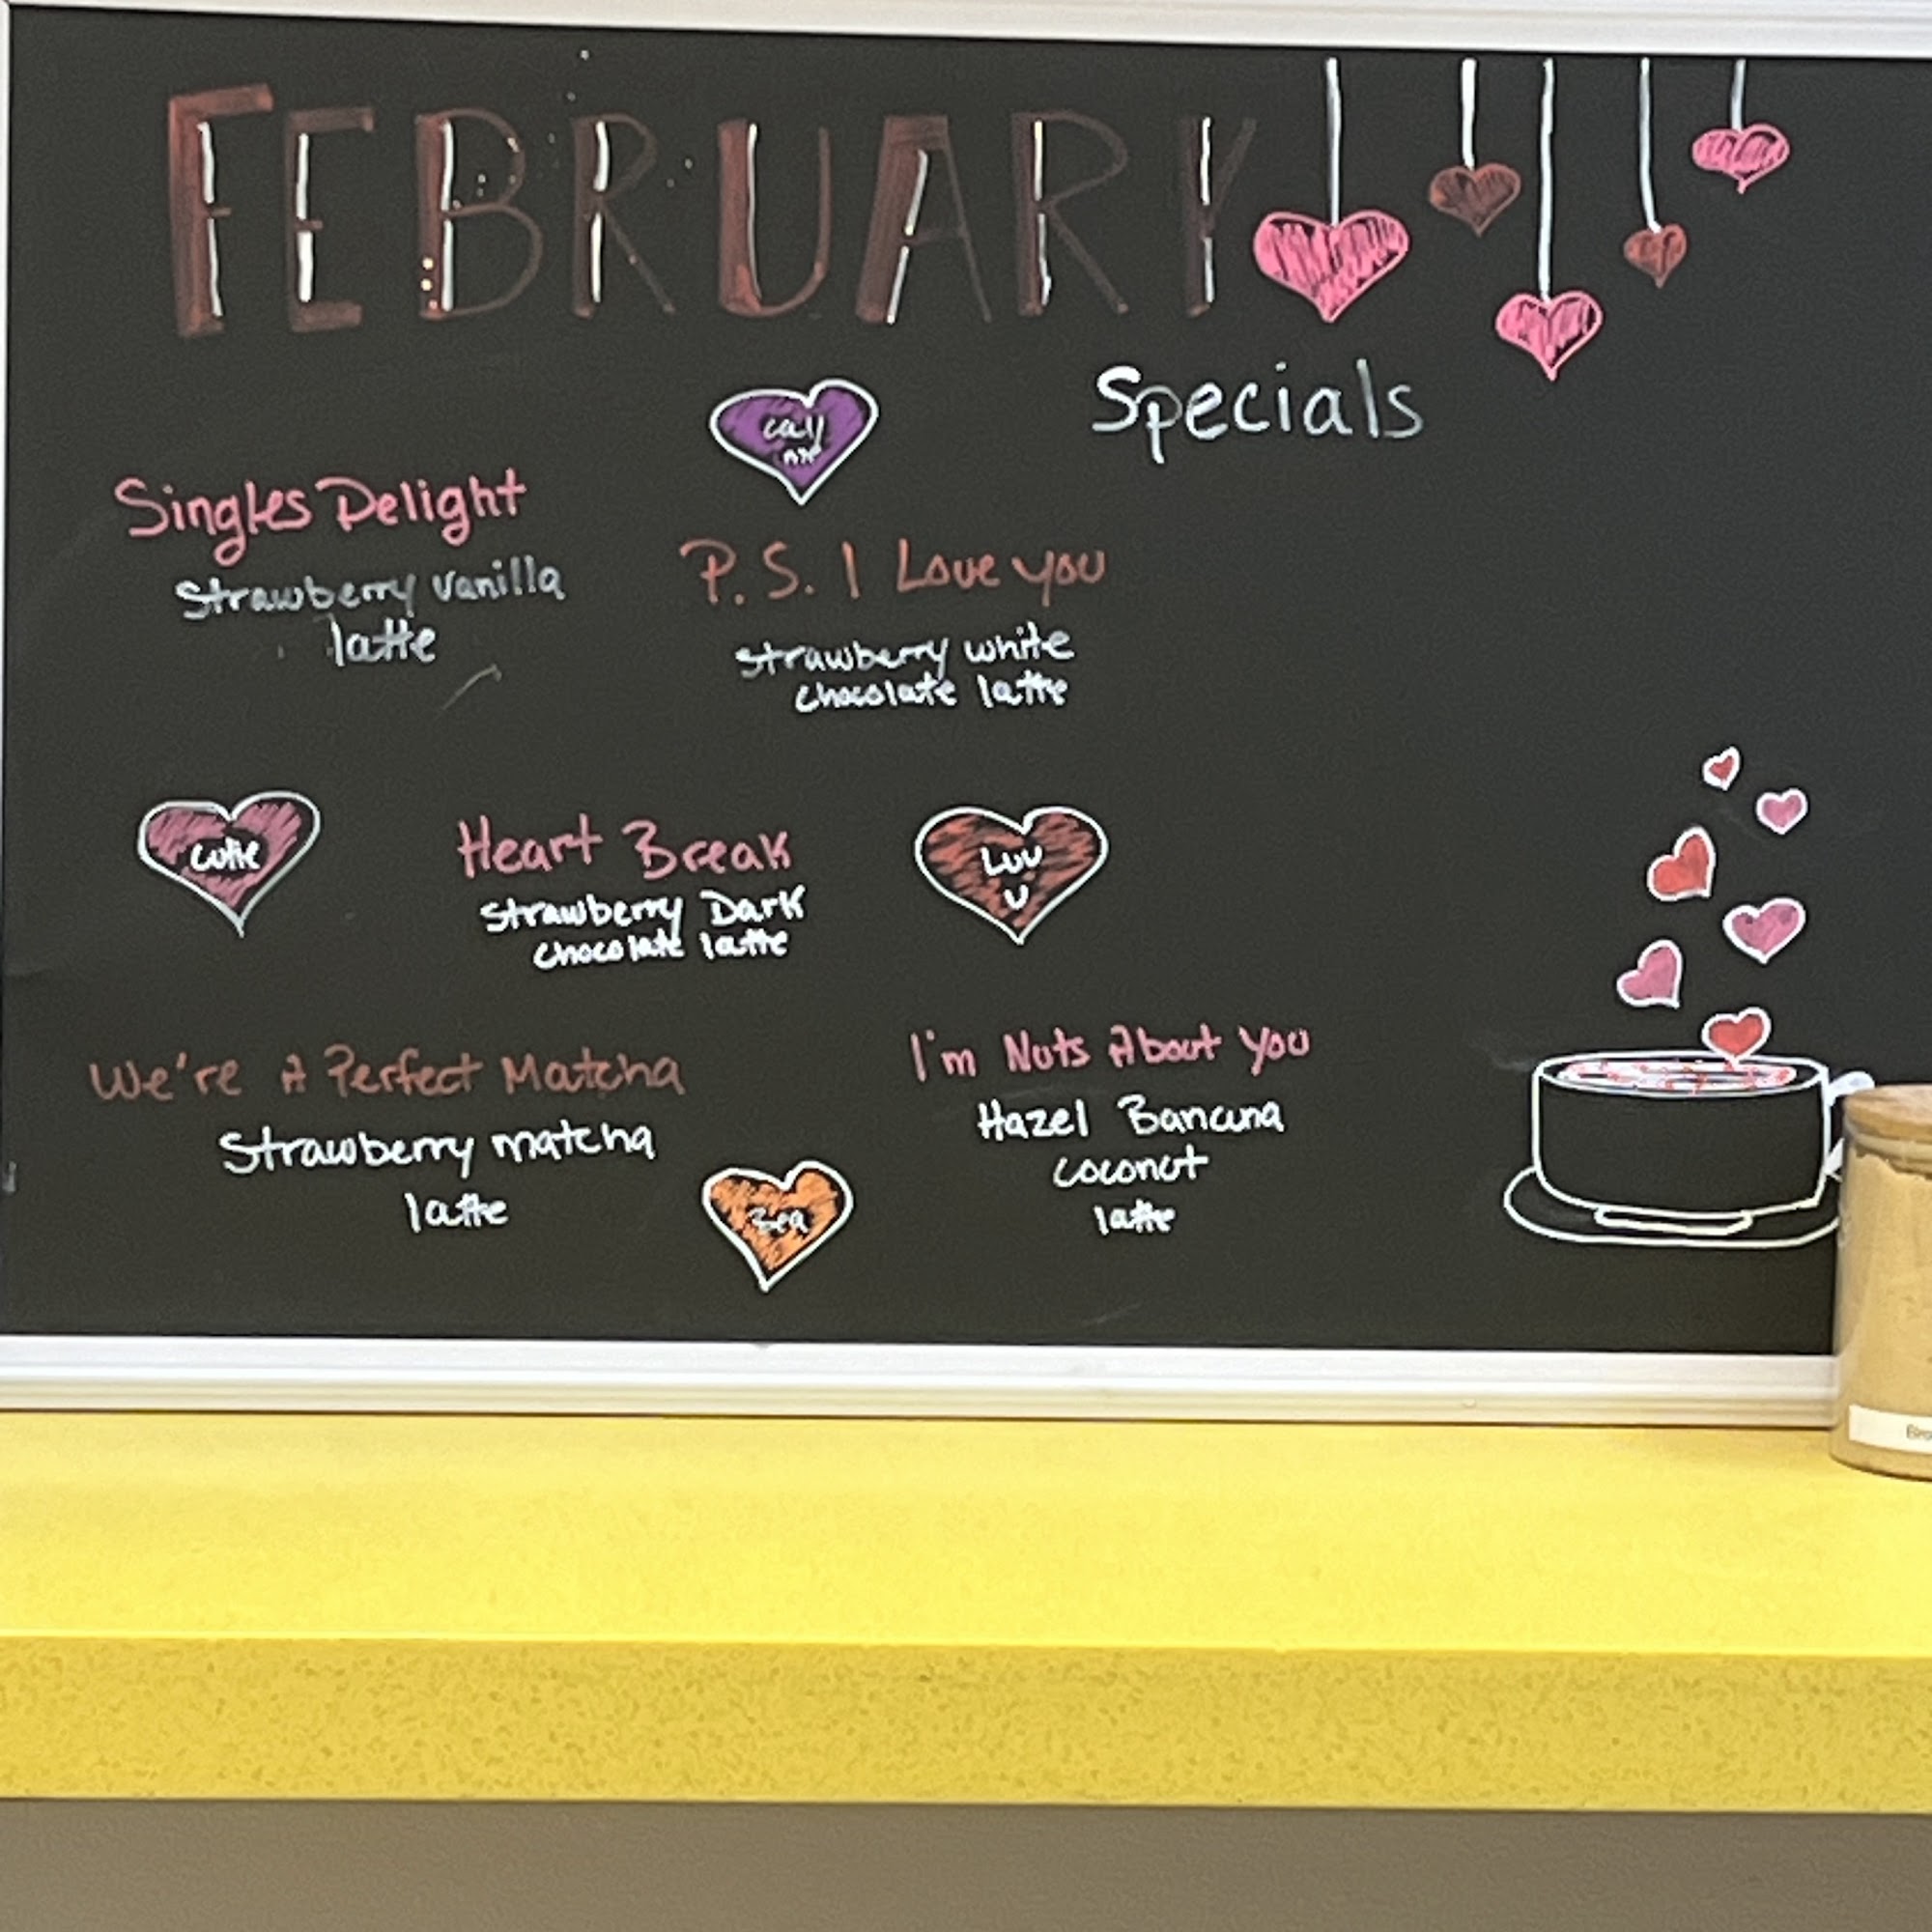 FEBRUARY
Specials
call
me
Singles Delight
Strawberry vanilla
latte
P.S. I Love you
strawberry white
chocolate latte
cutie
Heart Break
strawberry Dark
chocolate latte
Luv
U
We're A Perfect Matcha
Strawberry matcha
latte
I'm Nuts About you
Hazel Banana
coconut
latte